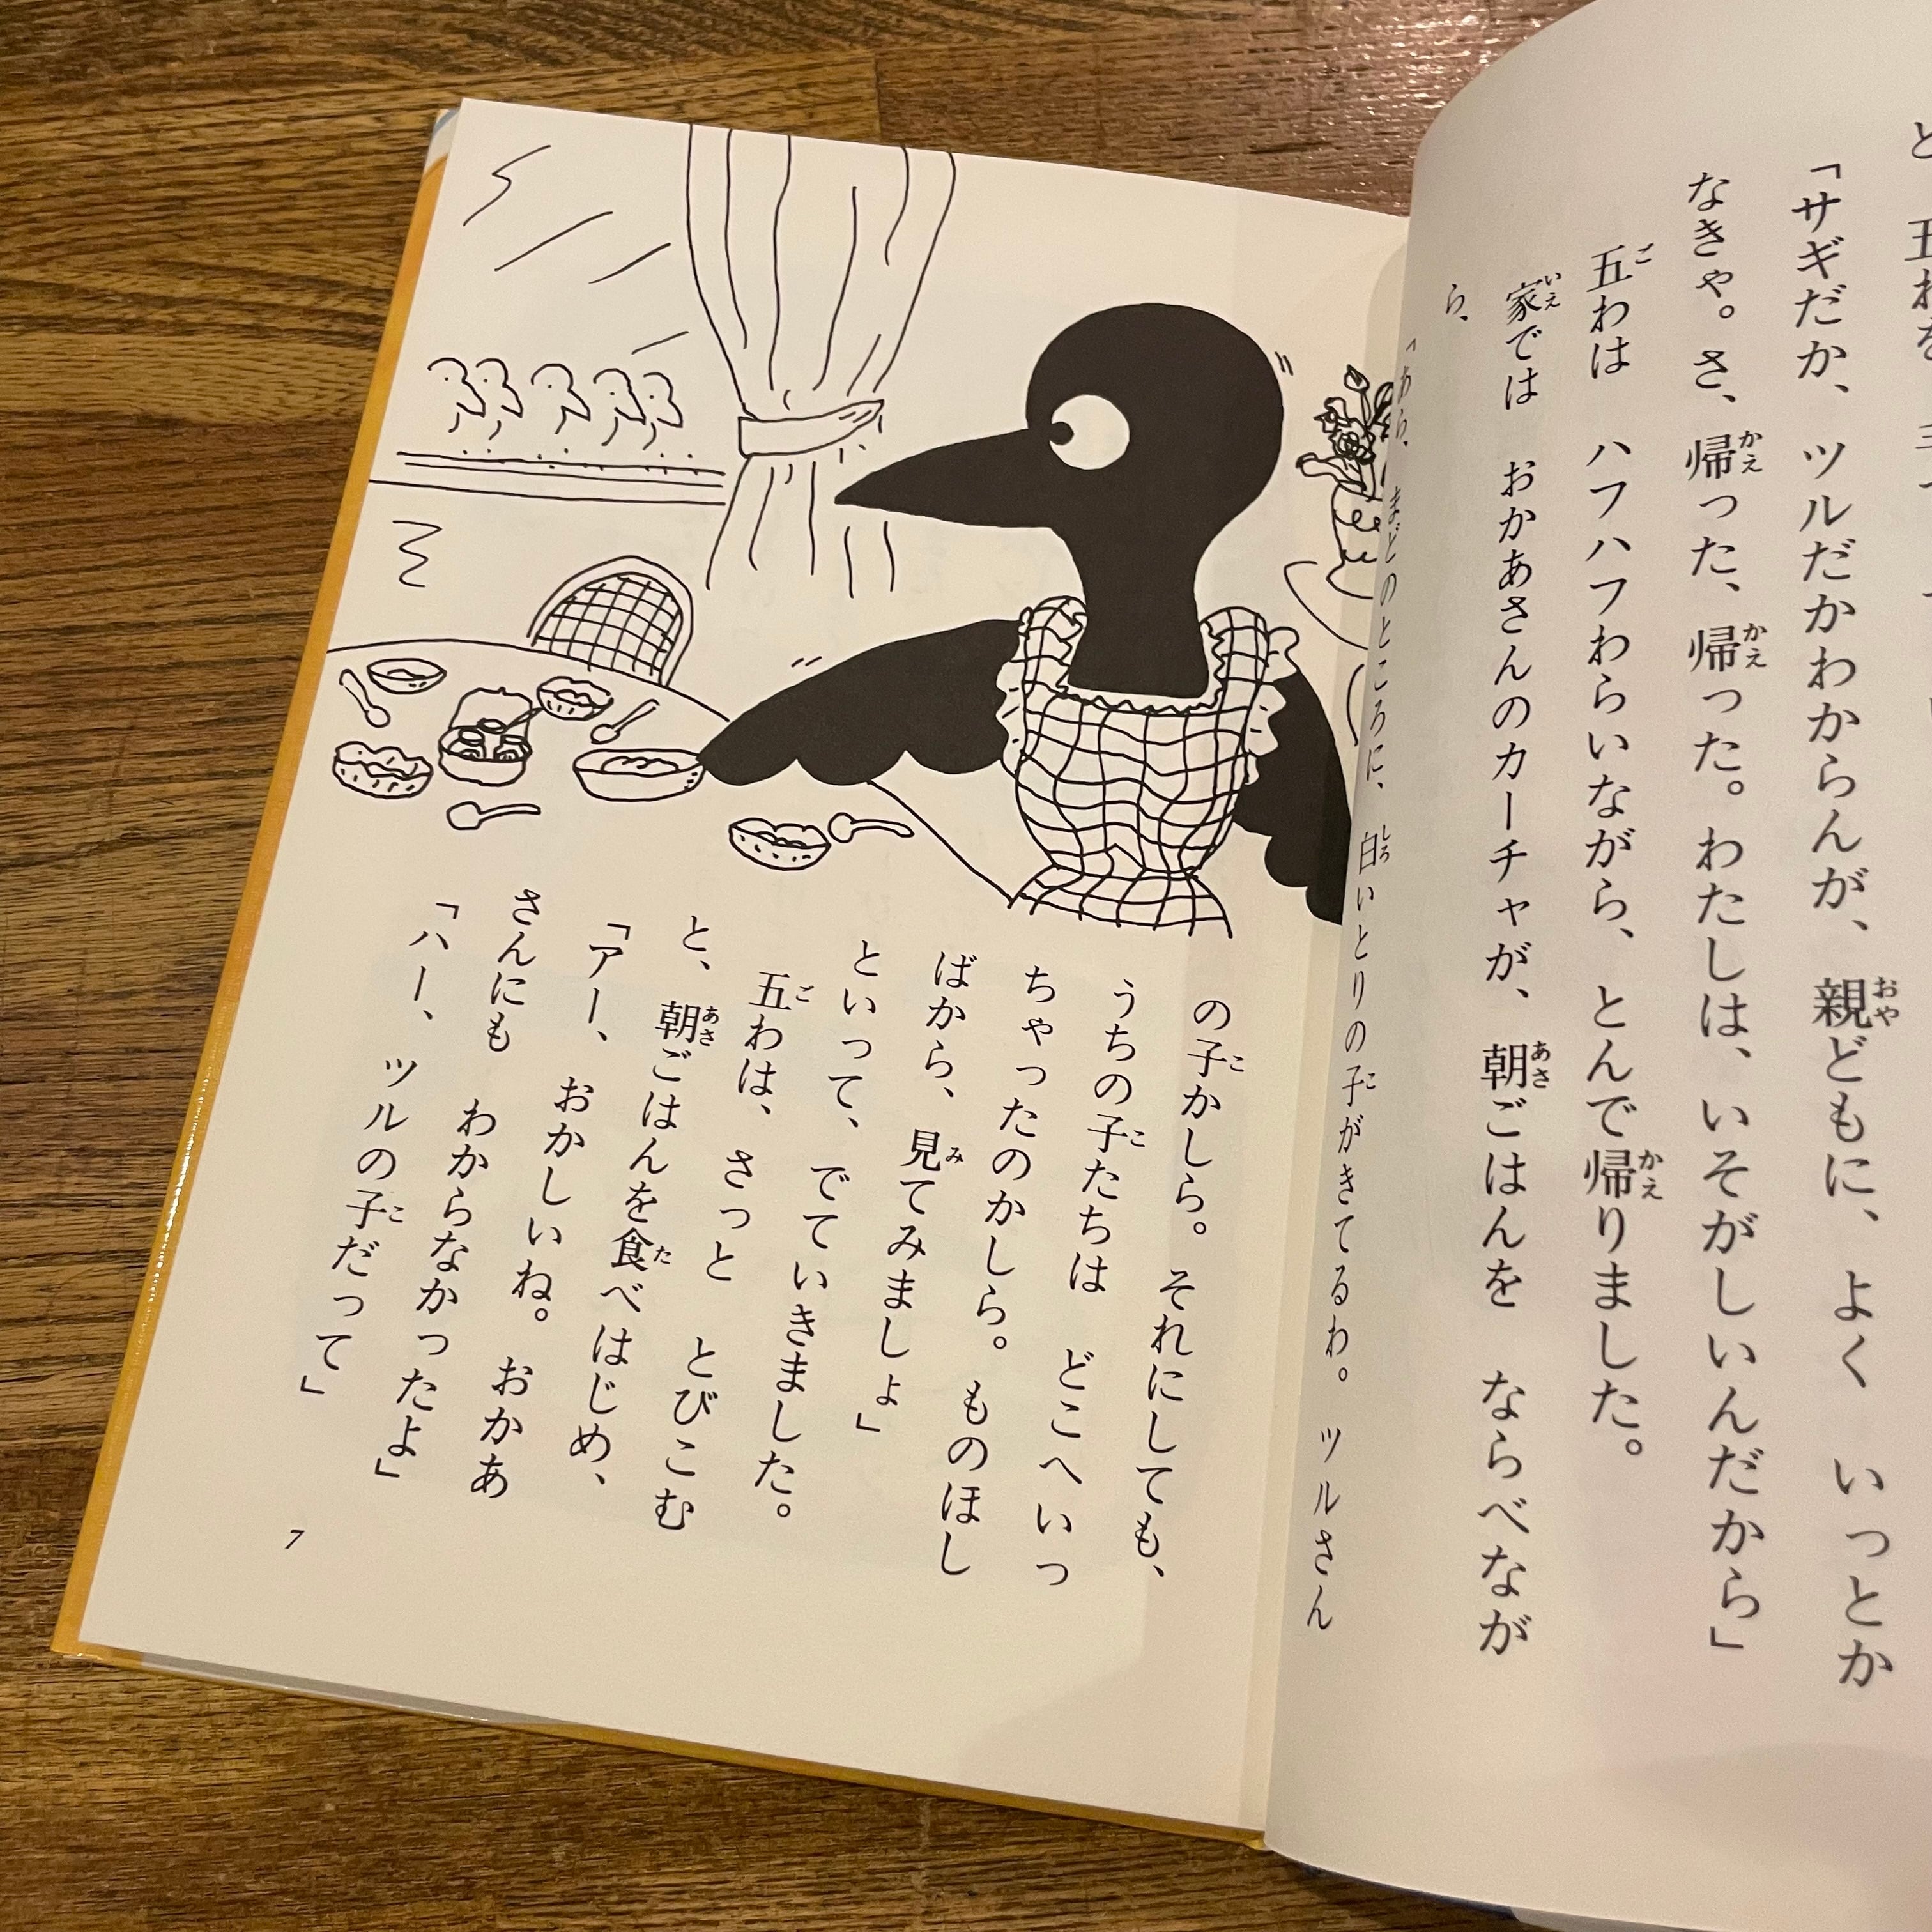 「サギだか、ツルだかわからんが、親どもに、よく いっとか
なきゃ。さ、帰った、帰った。わたしは、いそがしいんだから」
五わは ハフハフわらいながら、とんで帰りました。
家では おかあさんのカーチャが、朝ごはんを ならべなが
ら、
「あら、まどのところに、白いとりの子がきてるわ。ツルさん
の子かしら。それにしても、
うちの子たちは どこへいっ
ちゃったのかしら。ものほし
ばから、見てみましょ」
といって、でていきました。
五わは、さっと とびこむ
と、朝ごはんを食べはじめ、
「アー、おかしいね。おかあ
さんにも わからなかったよ」
「ハー、ツルの子だって」
7